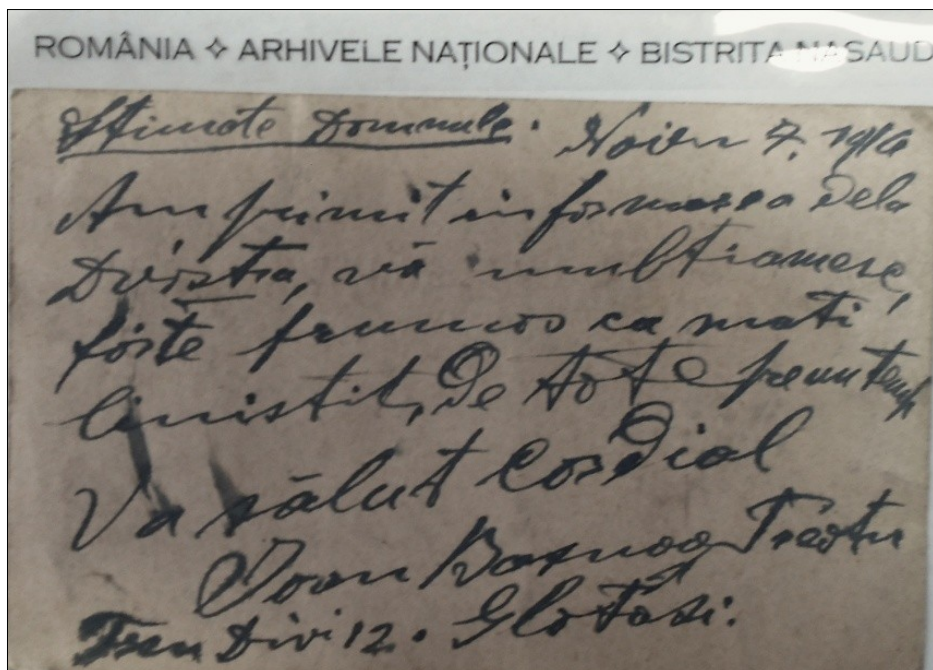 ROMÂNIA ✧ ARHIVELE NAȚIONALE ✧ BISTRITA NASAUD
Stimate Domnule. Noien 7, 1916
Am primit informarea dela
Dvóstra, vă multiamesc
fóste frumos ca mati
linistit, de tote premtemp
Va sălut Cordial
Ioan
Tren Divi 12. Glotasi.